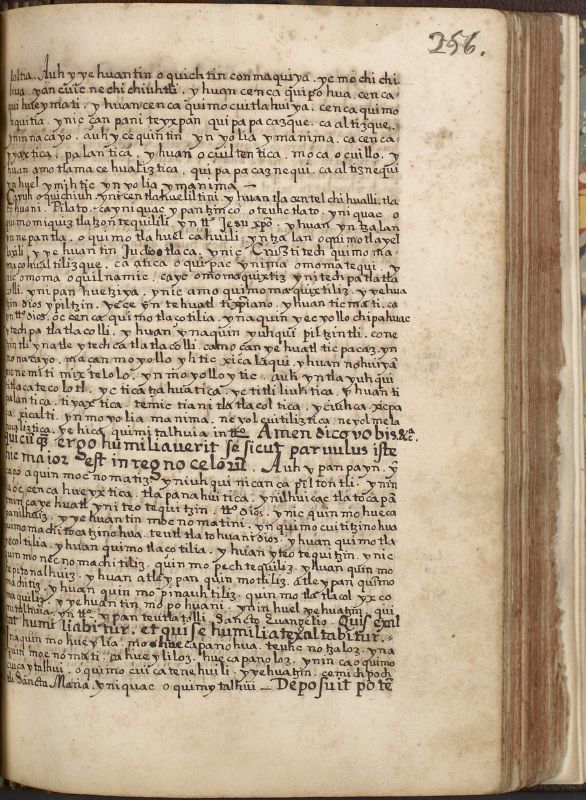 256.
loltia. Auh y ye huantin o quichtin con maquiya. yc mo chi chi
hua. y an cuic ne chi chiuhtli. y huan cenca qui po hua. cenca
qui huey mati. y huan cenca qui mo cuitlahuiya. cenca quimo
y quitia. ynic çan pani teyxpan qui pa pa cazque. ca al tizque.
y nin nacayo. auh y ce quintin yn yo lia y manima. ca cenca
y yax tica. pa lan tica. y huan o cuil ten tica. mo ca o cuillo. y
huan amo tlama ce hualiz tica. qui pa pa caz ne qui. ca al tiz ne qui
yn huel y mihtic yn yo lia y manima —
Ca yuh o quichiuh. yni cen tla huelil tini. y huan tla cen tel chi hualli. tla
to huani. Pilato. ca yniquac y pantzinco. o teuhc tlato. yniquac o
quimo miquiz tlatzon tequilili yn tto Jesu xpo. y huan yn tzalan
yn ne pan tla. o quimo tla huel ca huili. yn tza lan o quimo tlayel
y ye huan tin Judiostlaca. ynic Crus ti tech quimo ma
ma po hual tilizque. ca atica o quipac ynima omoma tequi. y
nic omoma o quil namic. ca yc omo ma quix tiz ynitech pa tla tla
colli. yni pan hue tziya. ynic amo quimo ma quix tiliz. y ye hua
tzin dios y piltzin. yece yn te huatl tixpiano. y huan tic ma ti. ca
yn tto dios. oc cenca qui mo tlaco tilia. yna quin y ec yollo chipahuac
y tech pa tlatlacolli. y huan ynaquin yuhqui piltzintli. cone
tzintli ynatle y tech ca tla tla colli. ca mo çan ye huatl tic pacaz. yn
mo nacayo. ma can mo yollo yhtic xicalaqui. y huan nohuiya
ne nemi ti mix te lo lo. yn mo yollo ytic. auh yn tla yuh qui
tlaca teco lotl. yc tica tza hua tica. yc titli liuh tica. y huan ti
palan tica. ti yax tica. temic tiani tla tlacol tica. y cuihca xicpa
ca. xicalti. yn mo yo lia manima. ne yol cuitiliz tica. ne yol mela
hualiz tica. ye hica quimi talhuia in tto. Amen dico vobis. &ca.
qui cuq; ergo humiliaverit se sicut parvulus iste
hic maior est in regno celoru. Auh y pan pa yn. y
caco aquin moc no matiz. yniuh qui nican ca piltontli. ynin
ca oc cenca hueyx tica. tla pana hui tica. ynilhuicac tlatoca pa
min ca ye huatl yni teo tequi tzin. tto dios. ynic quin mo hueca
panilhuiz. y ye huantin moc no ma tini. yn quimo cui titzino hua
quimo machi to ca tzino hua. teutl tlato huani dios. y huan quimo tla
ço tilia. y huan quimo tlaco tilia. y huan y teo te quitzin. ynic
quin mo nec no machi tiliz. quin mo pech te quiliz. y huan quin mo
te pi to nal huiz. y huan atle y pan quin mottiliz. atle y pan quimo
machi tiz. y huan quin mo pinauh tiliz. quin mo tla tlacol yx co
ma quiliz. y ye huantin mo po huani. ynin huel ye huatzin. qui
mi talhuia. yn tto. y pan teutla tolli. Sancto Euangelio. Quise exal
tat humiliabitur. et qui se humiliat exaltabitur.
ynaquin mo hueylia. mo hueca pano hua. teuhc no tzaloz. yna
quin moc no ma ti. ca hue y liloz. hueca pano loz. ynin ca o quimo
cui ca ytalhui. o quimo cui ca tene huili. y ye huatzin. cemi ch poch
tli Sancta Maria. yniquac o quimy talhui — Deposuit pote